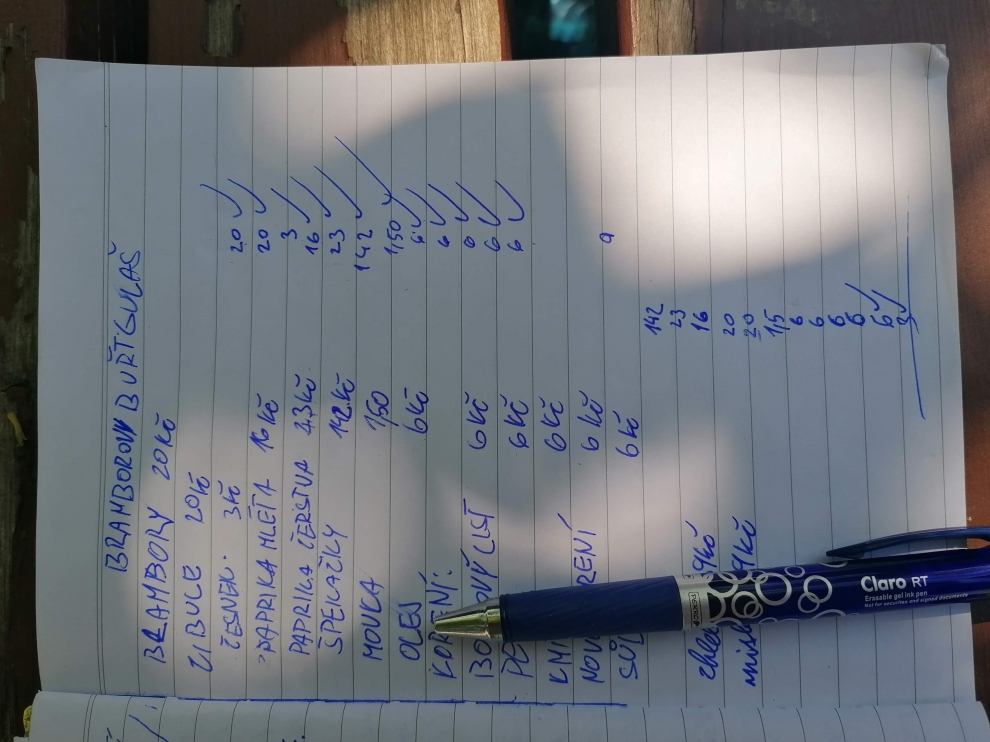 BRAMBOROVÝ BUŘTGULÁŠ
BRAMBORY 20 Kč
CIBULE 20 Kč
ČESNEK. 3 Kč
PAPRIKA MLETÁ 16 Kč
PAPRIKA ČERSTVÁ 23 Kč
ŠPEKAČKY 142 Kč
MOUKA 1,50
OLEJ 6 Kč
KOŘENÍ:
BO OVÝ LIST 6 Kč
PE 6 Kč
KMÍ 6 Kč
NOV ŘENÍ 6 Kč
SŮL 6 Kč
chle 9 Kč
9 Kč
20
20
3
16
23
142
1,50
6
6
6
6
6
9
142
23
16
20
20
1,5
6
6
6
6
6
3
Claro RT
Erasable gel ink pen
Not for securities and signed documents